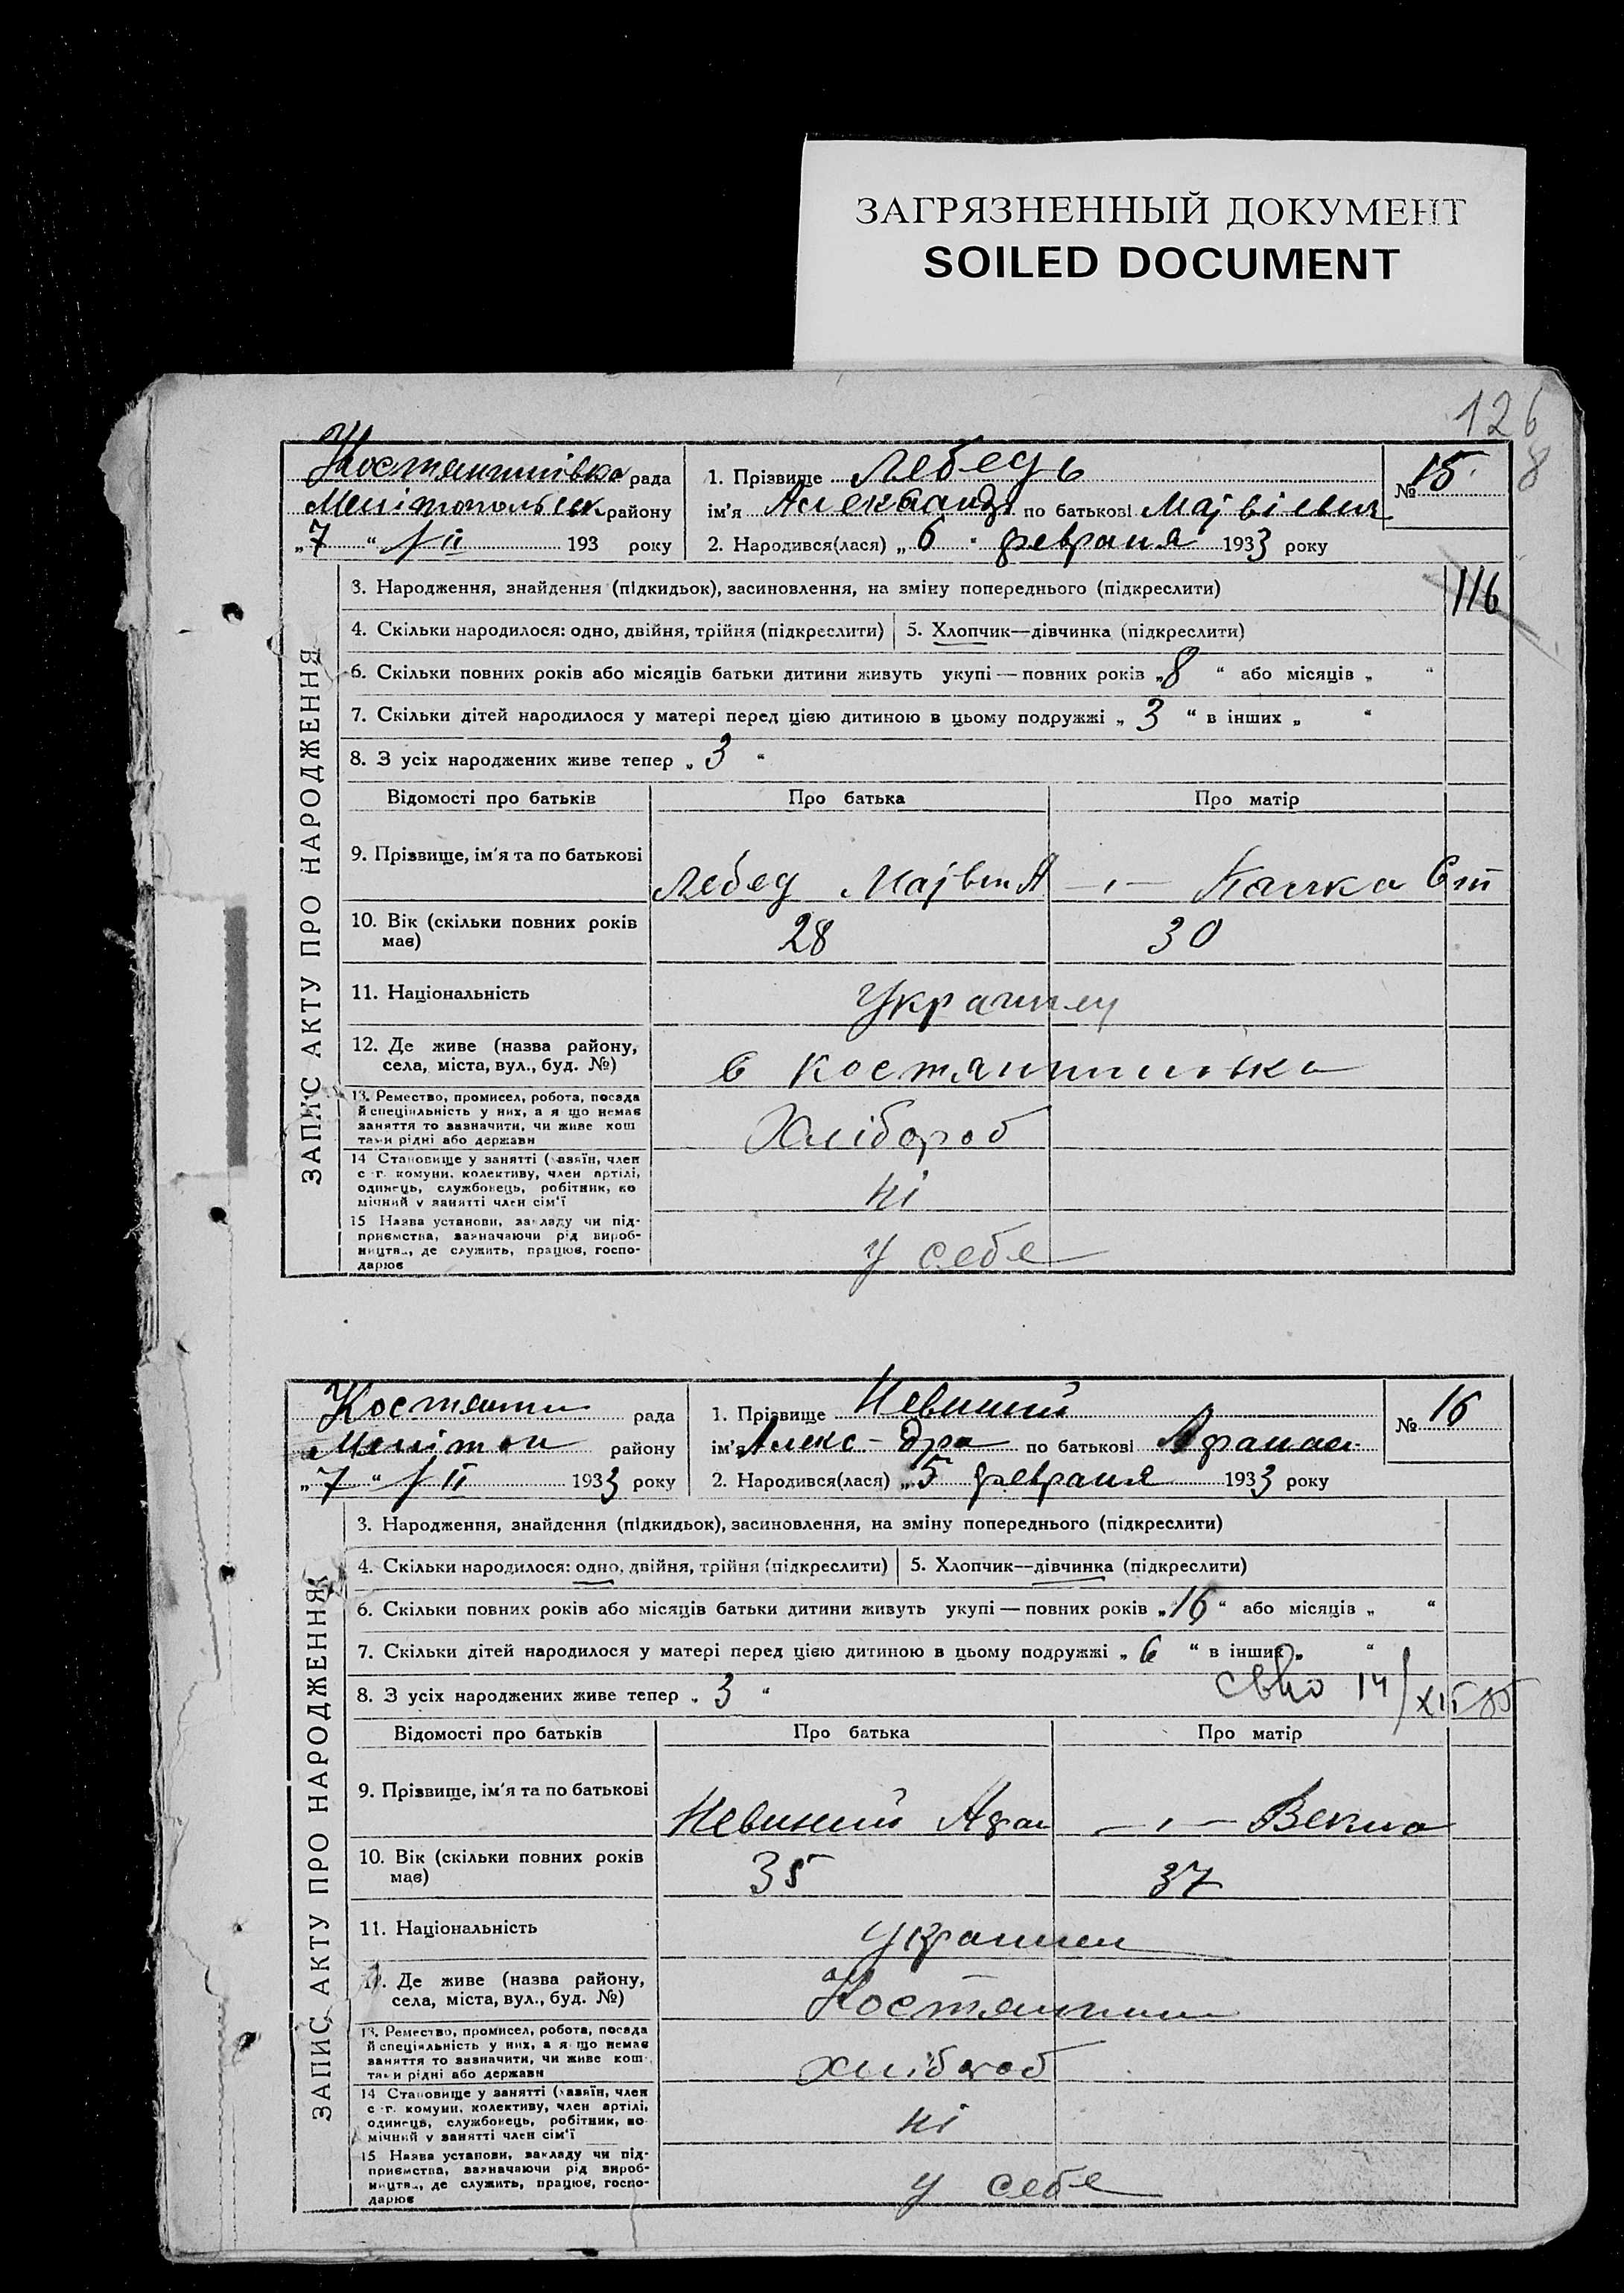 ЗАГРЯЗНЕННЫЙ ДОКУМЕНТ
SOILED DOCUMENT
126
8
Костянтинівка рада
Мелітопольськ району
„7“ / II 193 року
1. Прізвище Лебедь
ім'я Александр по батькові
2. Народився(лася) „6“ февраля 1933 року
№ 15
116
ЗАПИС АКТУ ПРО НАРОДЖЕННЯ
3. Народження, знайдення (підкидьок), засиновлення, на зміну попереднього (підкреслити)
4. Скільки народилося: одно, двійня, трійня (підкреслити) 5. Хлопчик—дівчинка (підкреслити)
6. Скільки повних років або місяців батьки дитини живуть укупі — повних років „8“ або місяців „ “
7. Скільки дітей народилося у матері перед цією дитиною в цьому подружжі „3“ в інших „ “
8. З усіх народжених живе тепер „3“
Відомості про батьків Про батька Про матір
9. Прізвище, ім'я та по батькові Лебед —„—
10. Вік (скільки повних років
має) 28 30
11. Національність Украинец
12. Де живе (назва району,
села, міста, вул., буд. №)
13. Ремество, промисел, робота, посада
й спеціяльність у них, а я що немає
заняття то зазначити, чи живе кош
тами рідні або держави Хлібороб
14 Становище у занятті (хазяїн, член
с.-г. комуни, колективу, член артілі,
одинець, службовець, робітник, по
мічний у занятті член сім'ї ні
15 Назва установи, закладу чи під-
приємства, зазначаючи рід вироб-
ництва, де служить, працює, госпо-
дарює у себе
Костянти рада
Мелітоп району
„7“ / II 1933 року
1. Прізвище Невиний
ім'я Алекс-дра по батькові Афанас-
2. Народився(лася) „5 февраля 1933 року
№ 16
ЗАПИС АКТУ ПРО НАРОДЖЕННЯ
3. Народження, знайдення (підкидьок), засиновлення, на зміну попереднього (підкреслити)
4. Скільки народилося: одно, двійня, трійня (підкреслити) 5. Хлопчик—дівчинка (підкреслити)
6. Скільки повних років або місяців батьки дитини живуть укупі — повних років „16“ або місяців „ “
7. Скільки дітей народилося у матері перед цією дитиною в цьому подружжі „6“ в інших „ “
8. З усіх народжених живе тепер „3“
Відомості про батьків Про батька Про матір
9. Прізвище, ім'я та по батькові Невиний Афан —„—
10. Вік (скільки повних років
має) 35 37
11. Національність украинец
12. Де живе (назва району,
села, міста, вул., буд. №) Костянтин
13. Ремество, промисел, робота, посада
й спеціяльність у них, а я що немає
заняття то зазначити, чи живе кош
тами рідні або держави хлібороб
14 Становище у занятті (хазяїн, член
с.-г. комуни, колективу, член артілі,
одинець, службовець, робітник, по
мічний у занятті член сім'ї ні
15 Назва установи, закладу чи під-
приємства, зазначаючи рід вироб-
ництва, де служить, працює, госпо-
дарює у себе